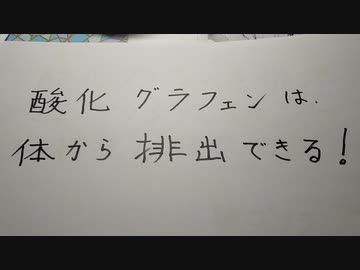 酸化グラフェンは.
体から排出できる!